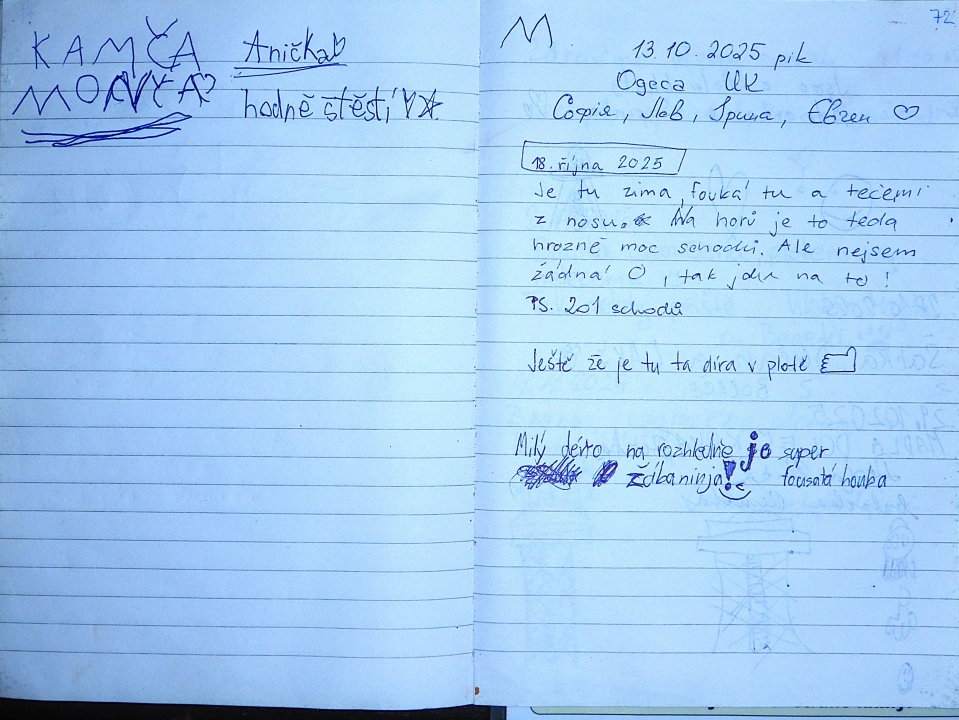 KAMČA Anička
MONČA hodně štěstí
72
M
13.10.2025 рік
Одеса UK
Софія, Лев, Ірина, Євген ♡
18. října 2025
Je tu zima, fouká tu a teče mi
z nosu. Na horu je to teda
hrozně moc schodů. Ale nejsem
žádná O, tak jdu na to!
PS. 201 schodů
Ještě že je tu ta díra v plotě
Milý na rozhledně je super
ždibaninja! fousatá houba